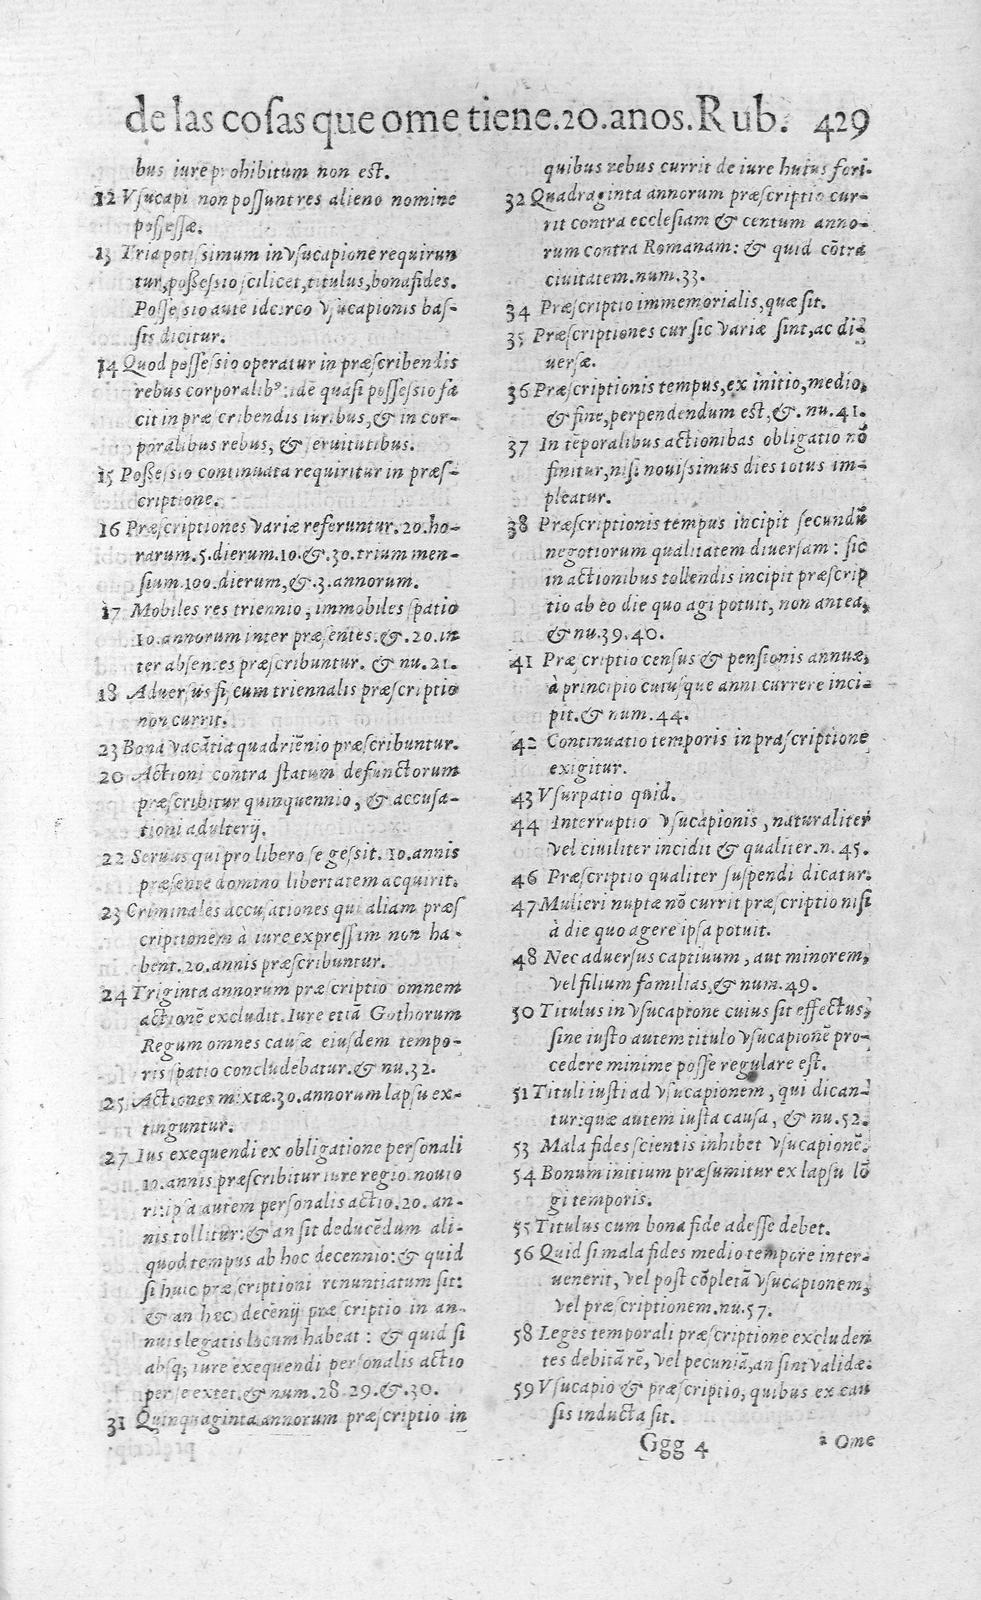 de las cosas que ome tiene.20.anos.Rub. 429
bus iure prohibitum non est.
12 Vsucapi non possunt res alieno nomine
possessæ.
13 Tria potissimum in vsucapione requirun
tur, possessio scilicet, titulus, bona fides.
Possessio autē idcirco vsucapionis bas-
sis dicitur.
14 Quod possessio operatur in præscribendis
rebus corporalib⁹: idē quasi possessio fa
cit in præscribendis iuribus, & in cor-
poralibus rebus, & seruitutibus.
15 Possessio continuata requiritur in præs-
criptione.
16 Præscriptiones variæ referuntur.20.ho-
rarum.5.dierum.10.&.30.trium men-
sium.100.dierum,&.3.annorum.
17 Mobiles res triennio, immobiles spatio
10.annorum inter præsentes.&.20.in
ter absentes præscribuntur. & nu.21.
18 Aduersus fiscum triennalis præscriptio
non currit.
23 Bona vacātia quadriēnio præscribuntur.
20 Actioni contra statum defunctorum
præscribitur quinquennio, & accusa-
tioni adulterij.
22 Seruus qui pro libero se gessit.10.annis
præsente domino libertatem acquirit.
23 Criminales accusationes qui aliam præs
criptionem à iure expressim non ha-
bent.20.annis præscribuntur.
24 Triginta annorum præscriptio omnem
actionē excludit. Iure etiā Gothorum
Regum omnes causæ eiusdem tempo-
ris spatio concludebatur.& nu.32.
25 Actiones mixtæ.30.annorum lapsu ex-
tinguntur.
27 Ius exequendi ex obligatione personali
10.annis præscribitur iure regio nouio
ri: ipsa autem personalis actio.20. an-
nis tollitur: & an sit deducēdum ali-
quod tempus ab hoc decennio: & quid
si huic præscriptioni renuntiatum sit:
& an hæc decēnij præscriptio in an-
nuis legatis locum habeat: & quid si
absq; iure exequendi personalis actio
per se extet.& num.28 29.&.30.
31 Quinquaginta annorum præscriptio in
quibus rebus currit de iure huius fori.
32 Quadraginta annorum præscriptio cur-
rit contra ecclesiam & centum anno-
rum contra Romanam: & quid cōtra
ciuitatem.num.33.
34 Præscriptio immemorialis, quæ sit.
35 Præscriptiones cur sic variæ sint, ac di-
uersæ.
36 Præscriptionis tempus, ex initio, medio,
& fine, perpendendum est,&. nu.41.
37 In tēporalibus actionibas obligatio nō
finitur, nisi nouissimus dies totus im-
pleatur.
38 Præscriptionis tempus incipit secundū
negotiorum qualitatem diuersam: sic
in actionibus tollendis incipit præscrip
tio ab eo die quo agi potuit, non antea,
& nu.39.40.
41 Præscriptio census & pensionis annuæ,
à principio cuiusque anni currere inci-
pit.& num.44.
42 Continuatio temporis in præscriptione
exigitur.
43 Vsurpatio quid.
44 Interruptio vsucapionis, naturaliter
vel ciuiliter incidit & qualiter.n.45.
46 Præscriptio qualiter suspendi dicatur.
47 Mulieri nuptæ nō currit præscriptio nisi
à die quo agere ipsa potuit.
48 Nec aduersus captiuum, aut minorem,
vel filium familias,& num.49.
50 Titulus in vsucapione cuius sit effectus,
sine iusto autem titulo vsucapionē pro-
cedere minime posse regulare est.
51 Tituli iusti ad vsucapionem, qui dican-
tur: quæ autem iusta causa, & nu.52.
53 Mala fides scientis inhibet vsucapionē.
54 Bonum initium præsumitur ex lapsu lō
gi temporis.
55 Titulus cum bona fide adesse debet.
56 Quid si mala fides medio tempore inter-
uenerit, vel post cōpletā vsucapionem,
vel præscriptionem.nu.57.
58 Leges temporali præscriptione excluden
tes debitārē, vel pecuniā, an sint validæ.
59 Vsucapio & præscriptio, quibus ex cau
sis inducta sit.
Ggg 4
Ome